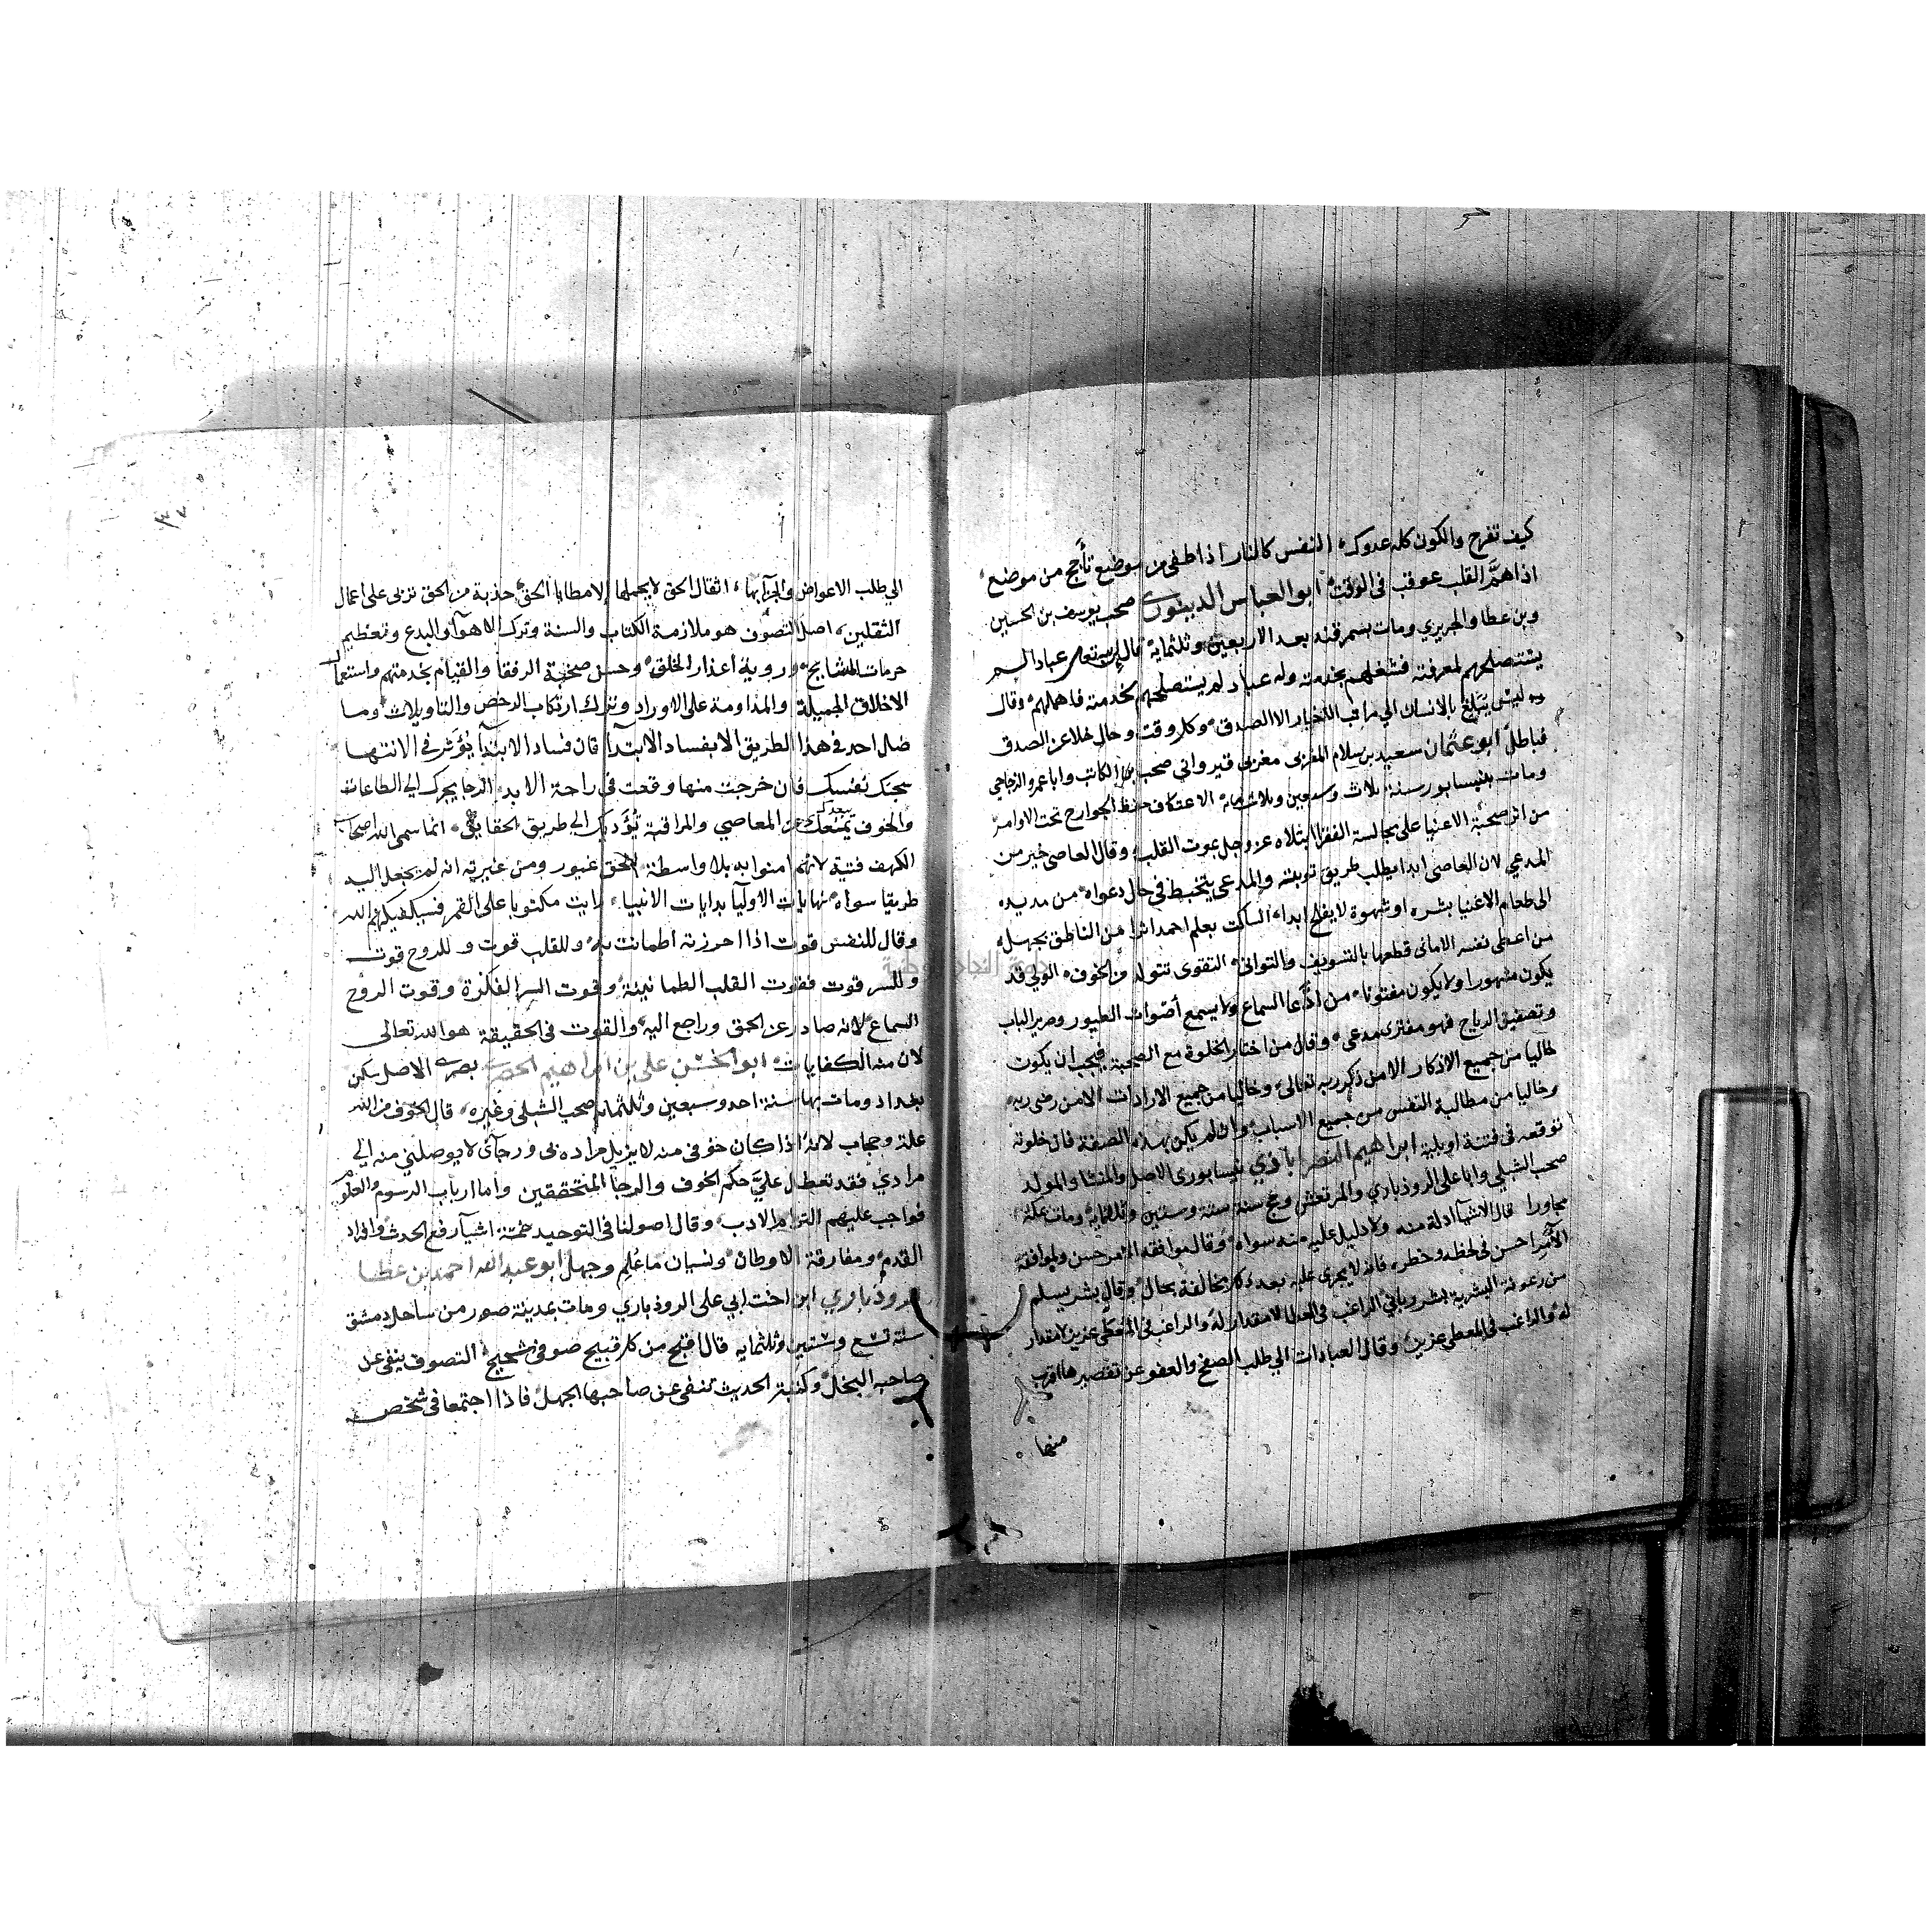 كيف تفرح والكون كله عدوك النفس كالنار اذا طفى من موضع تأجج من موضع
اذا همّ القلب عوقب في الوقت ابو العباس الدينوري صحب يوسف بن الحسين
وبن عطا والجريري ومات بسمرقند بعد الاربعين وثلثماية قال ان لله تعالى عبادا لم
يستصلحهم لمعرفته فشغلهم بخدمته وله عباد لم يستصلحهم لخدمته فاهملهم وقال
ليس يبلغ بالانسان الى مراتب الاخيار الا الصدق وكل وقت وحال خلا عن الصدق
فباطل ابو عثمان سعيد بن سلام المغربى مغربى قيرواني صحب بن الكاتب وابا عمرو الزجاجي
ومات بنيسابور سنة ثلاث وسبعين وثلاث ماية الاعتكاف حفظ الجوارح تحت الاوامر
من اثر صحبة الاغنيا على مجالسة الفقرا ابتلاه عز وجل بموت القلب وقال العاصى خير من
المدعي لان العاصى ابدا يطلب طريق توبته والمدعى يتخبط في حال دعواه من مد يده
الى طعام الاغنيا بشره او شهوة لا يفلح ابدا الساكت بعلم احمد اثرا من الناطق بجهل
من اعطى نفسه الامانى قطعها بالتسويف والتوانى التقوى تتولد من الخوف الولي قد
يكون مشهورا ولا يكون مفتونا من ادّعا السماع ولا يسمع أصوات الطيور وصرير الباب
وتصفيق الرياح فهو مفترى مدعى وقال من اختار الخلوة مع الصحبة فيجب ان يكون
خاليا من جميع الاذكار الا من ذكر ربه تعالى وخاليا من جميع الارادات الا من رضى ربه
وخاليا من مطالبة النفس من جميع الاسباب وان لم يكن بهذه الصفة فان خلوته
توقعه فى فتنة او بلية ابراهيم النصراباذي نيسابورى الاصل والمنشا والمولد
صحب الشبلي وابا على الروذباري والمرتعش وحج سنة ستة وستين وثلثماية ومات بمكة
مجاورا قال الاشيا ادلة منه ولا دليل عليه منه سواه وقال موافقة الامر حسن وموافقة
الآمر احسن في لحظه وخطره فانه لا يجرى عليه بعد ذلك مخالفة بحال وقال بشر يسلم
من رعونة البشرية الراغب فى العطا لا مقدار له والراغب فى المعطى عزيز
له والراغب في المعطى عزيز وقال العبادات الى طلب الصفح والعفو عن تقصيرها اقرب
منها
الى طلب الاعواض والجزا بها اثقال الحق لا يحملها الا مطايا الحق جذبة من الحق تربى على اعمال
الثقلين اصل التصوف هو ملازمة الكتاب والسنة وترك الاهوآ والبدع وتعظيم
حرمات المشايخ وروية أعذار الخلق وحسن صحبة الرفقا والقيام بخدمتهم واستعمال
الاخلاق الجميلة والمداومة على الاوراد وترك ارتكاب الرخص والتاويلات وما
ضل احد في هذا الطريق الا بفساد الابتدآ فان فساد الابتدآ يؤثر في الانتها
سجنك نفسك فان خرجت منها وقعت في راحة الابد الرجا يجرك الى الطاعات
والخوف يبعدك عن المعاصي والمراقبة تؤديك الى طريق الحقايق انما سمى الله اصحاب
الكهف فتية لانهم امنوا به بلا واسطة الحق غيور ومن غيرته انه لم يجعل اليه
طريقا سواه نهايات الاوليآ بدايات الانبياء رايت مكتوبا على القمر فسيكفيكهم الله
وقال للنفس قوت اذا احرزته اطمانت به وللقلب قوت وللروح قوت
وللسر قوت فقوت القلب الطمانينة وقوت السر الفكرة وقوت الروح
السماع لانه صادر عن الحق وراجع اليه والقوت في الحقيقة هو الله تعالى
لان منه الكفايات ابو الحسن علي بن ابراهيم الحصري بصرى الاصل سكن
بغداد ومات بها سنة احد وسبعين وثلثماية صحب الشبلى وغيره قال الخوف من الله
علة وحجاب لانه اذا كان خوفى منه لا يزيل مراده بى ورجائى لا يوصلني منه الى
مرادي فقد تعطل عليّ حكم الخوف والرجا المتحققين واما ارباب الرسوم والعلوم
فواجب عليهم التزام الادب وقال اصولنا فى التوحيد خمسة اشيآ رفع الحدث وافراد
القدم ومفارقة الاوطان ونسيان ما عُلم وجهل ابو عبد الله احمد بن عطا
الروذباري ابن اخت ابي على الروذباري ومات بمدينة صور من ساحل دمشق
سنة تسع وستين وثلثمايه قال اقبح من كل قبيح صوفى شحيح التصوف ينفى عن
صاحبه البخل وكتبة الحديث تنفى عن صاحبها الجهل فاذا اجتمعا فى شخص